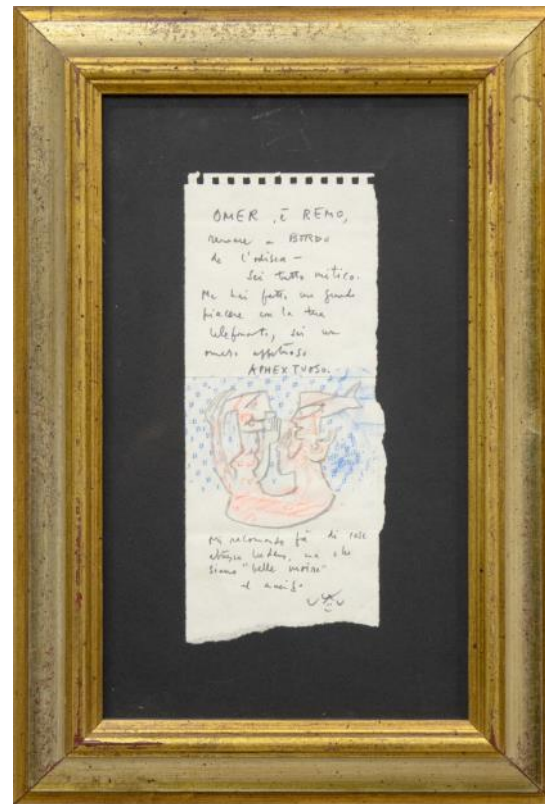 OMER, è REMO,
remare a BORDO
de l'odissea –
Sei tutto mitico.
Me hai fatto un grande
piacere con la tua
telefonata, sei un
omero
APHEXTUOSO.
Mi recomando fà di cose
ma che
siano "belle